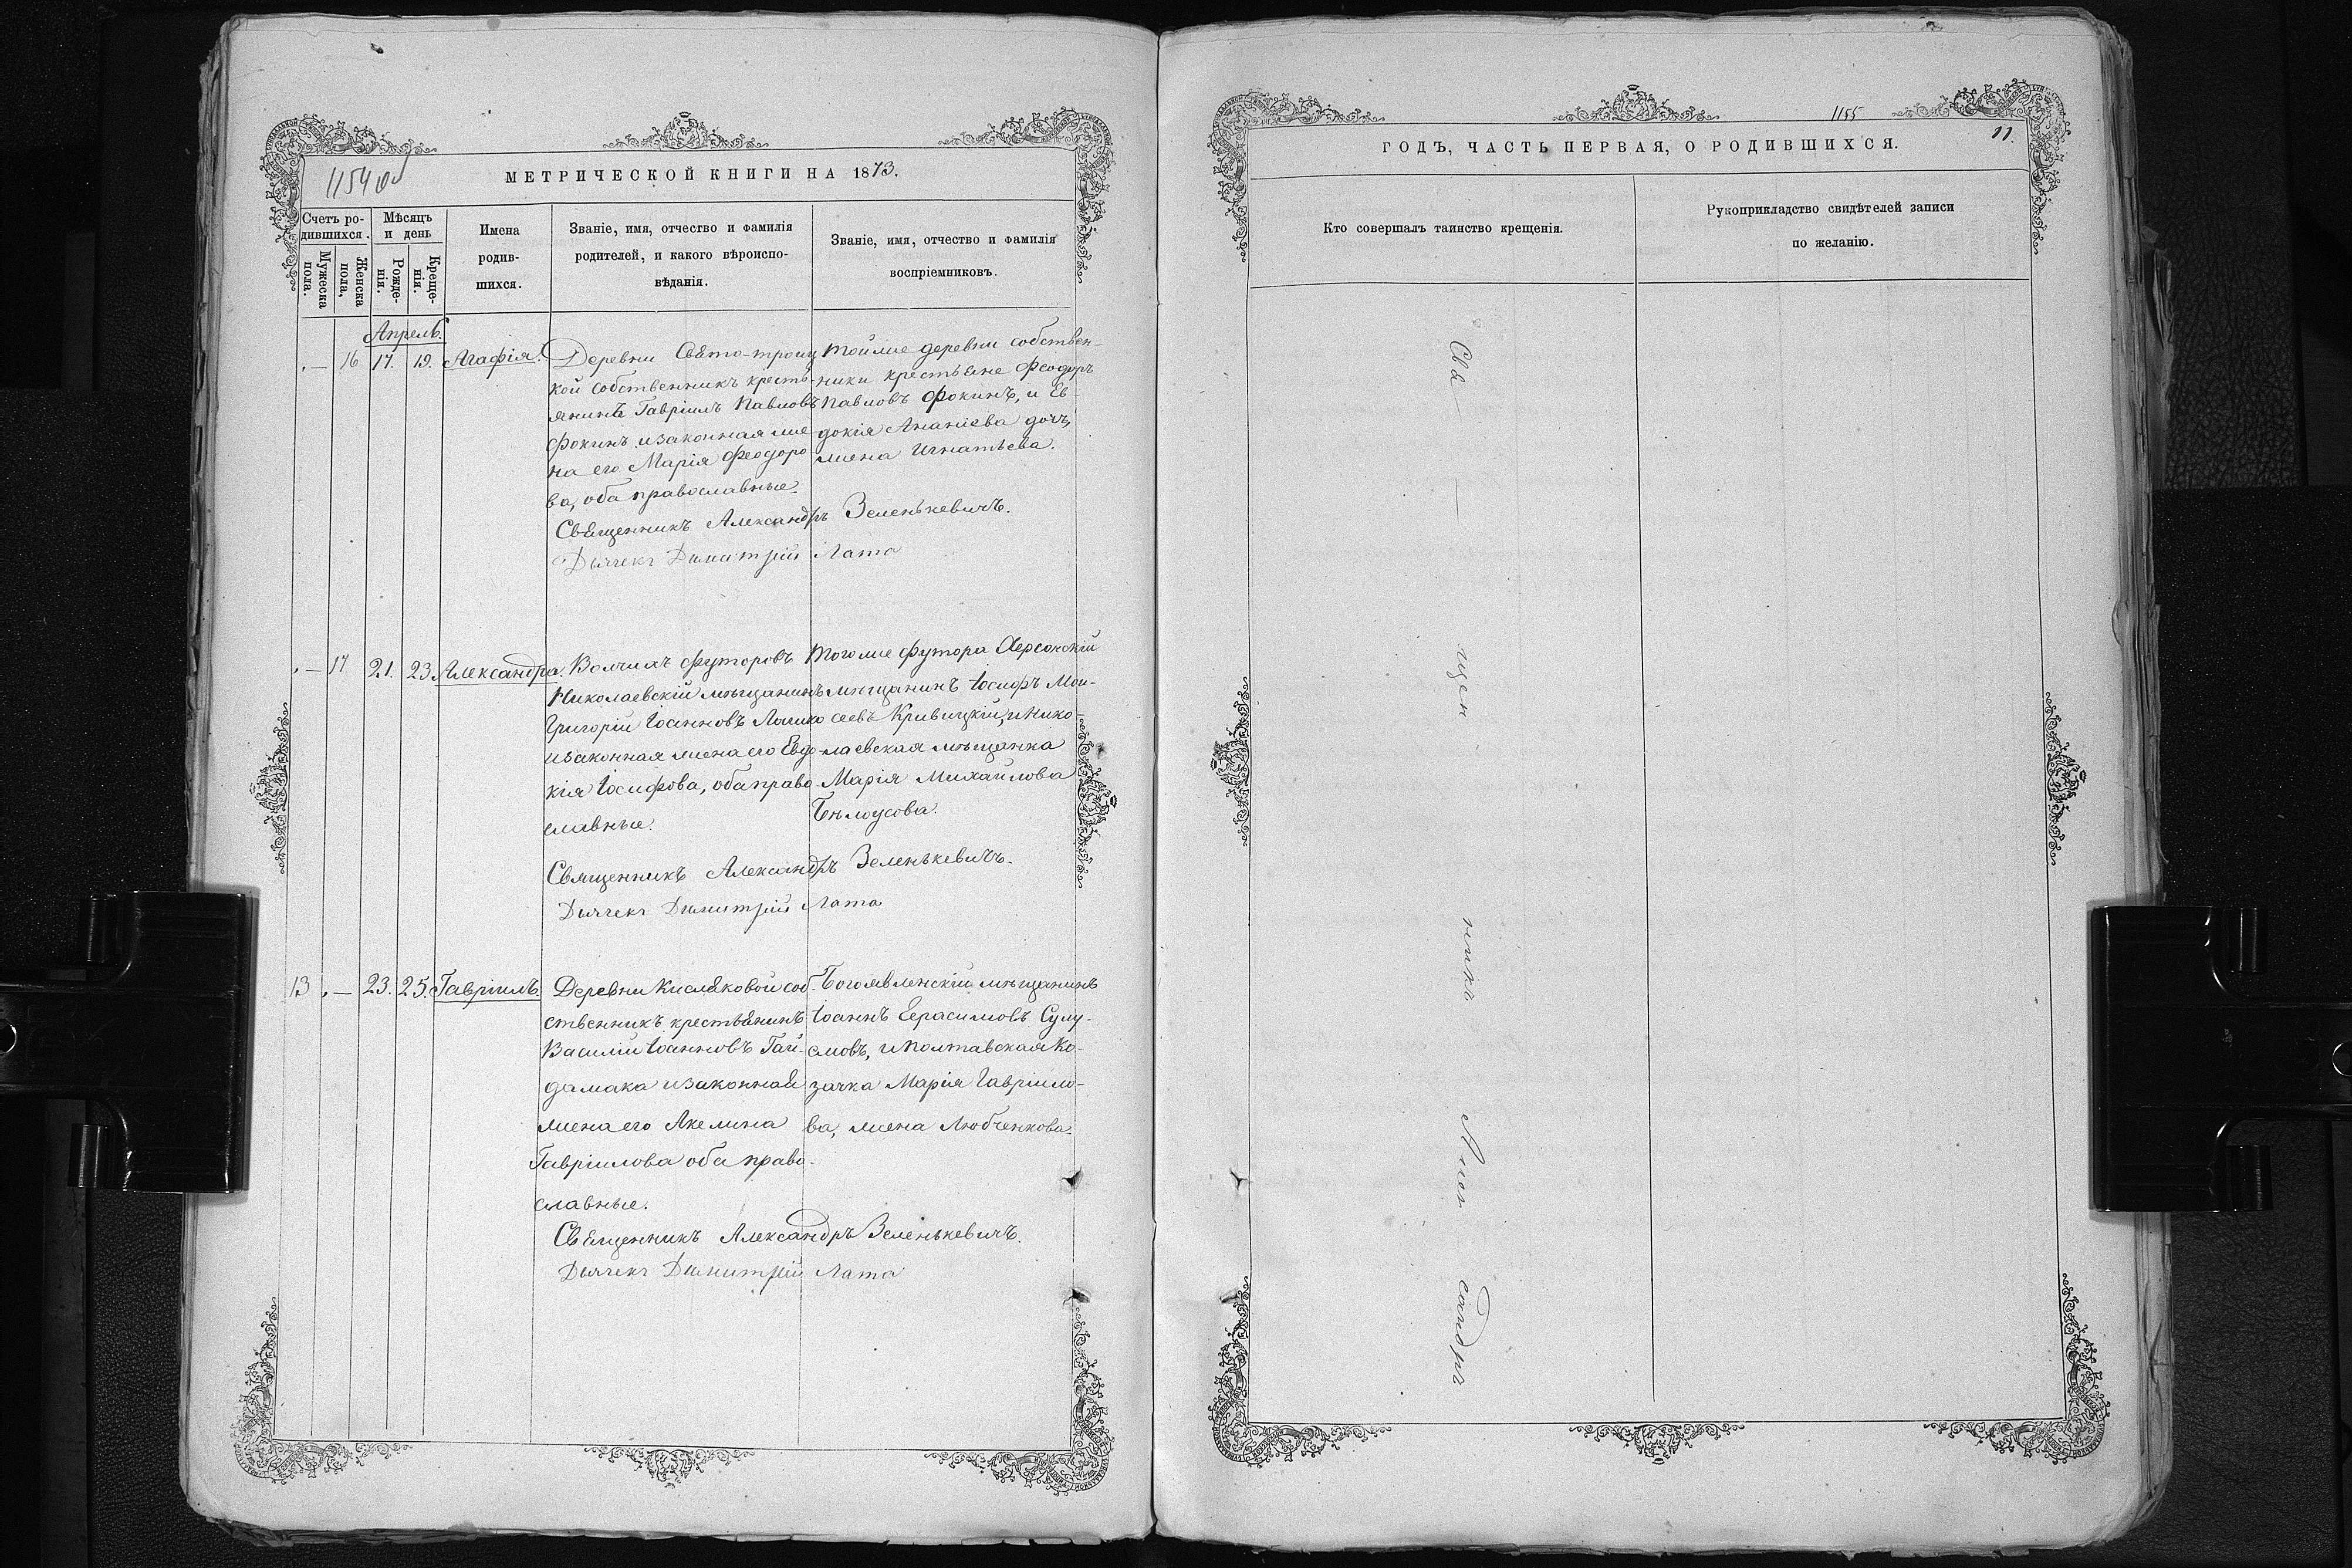 1154 об
МЕТРИЧЕСКОЙ КНИГИ НА 1873.
Счетъ ро-
дившихся.
Мужеска пола.
Женска пола,
Мѣсяцъ
и день
Рожде-
нія.
Креще-
нія.
Имена
родив-
шихся.
Званіе, имя, отчество и фамилія
родителей, и какого вѣроиспо-
вѣданія.
Званіе, имя, отчество и фамилія
воспріемниковъ.
Апрель.
„ — 16 17. 19. Агафія.
Деревни Свято-троиц
кой собственникъ кресть-
янинъ Гавріилъ Павловъ
Фокинъ и законная же
на его Марія Феодоро
ва, оба православные.
Тойже деревни собствен-
ники крестьяне Феодоръ
Павловъ Фокинъ, и Ев-
докія Ананіева дочь,
жена Игнатьева.
Священникъ Александръ Зеленькевичъ.
Дьячекъ Димитрій Лата
„ — 17 21. 23. Александра.
Волчихъ футоровъ
Николаевскій мѣщанинъ
Григорій Іоанновъ
и законная жена его Евдо-
кія Іосифова, оба право-
славные.
Тогоже футора Херсонскій
мѣщанинъ Іосифъ Мои-
сеевъ Кривицкій, и Нико-
лаевская мѣщанка
Марія Михайлова
Бѣлоусова.
Священникъ Александръ Зеленькевичъ.
Дьячекъ Димитрій Лата
13 „ — 23. 25. Гавріилъ.
Деревни Кисляковой соб-
ственникъ крестьянинъ
Василій Іоанновъ Гай-
дамака и законная
жена его Акелина
Гавріилова оба право-
славные.
Богоявленскій мѣщанинъ
Іоаннъ Герасимовъ
и Полтавская Ко-
зачка Марія Гавріило-
ва, жена Любченкова.
Священникъ Александръ Зеленькевичъ.
Дьячекъ Димитрій Лата
1155
11.
ГОДЪ, ЧАСТЬ ПЕРВАЯ, О РОДИВШИХСЯ.
Кто совершалъ таинство крещенія.
Рукоприкладство свидѣтелей записи
по желанію.
Свя — — щен — никъ Алек — сандръ